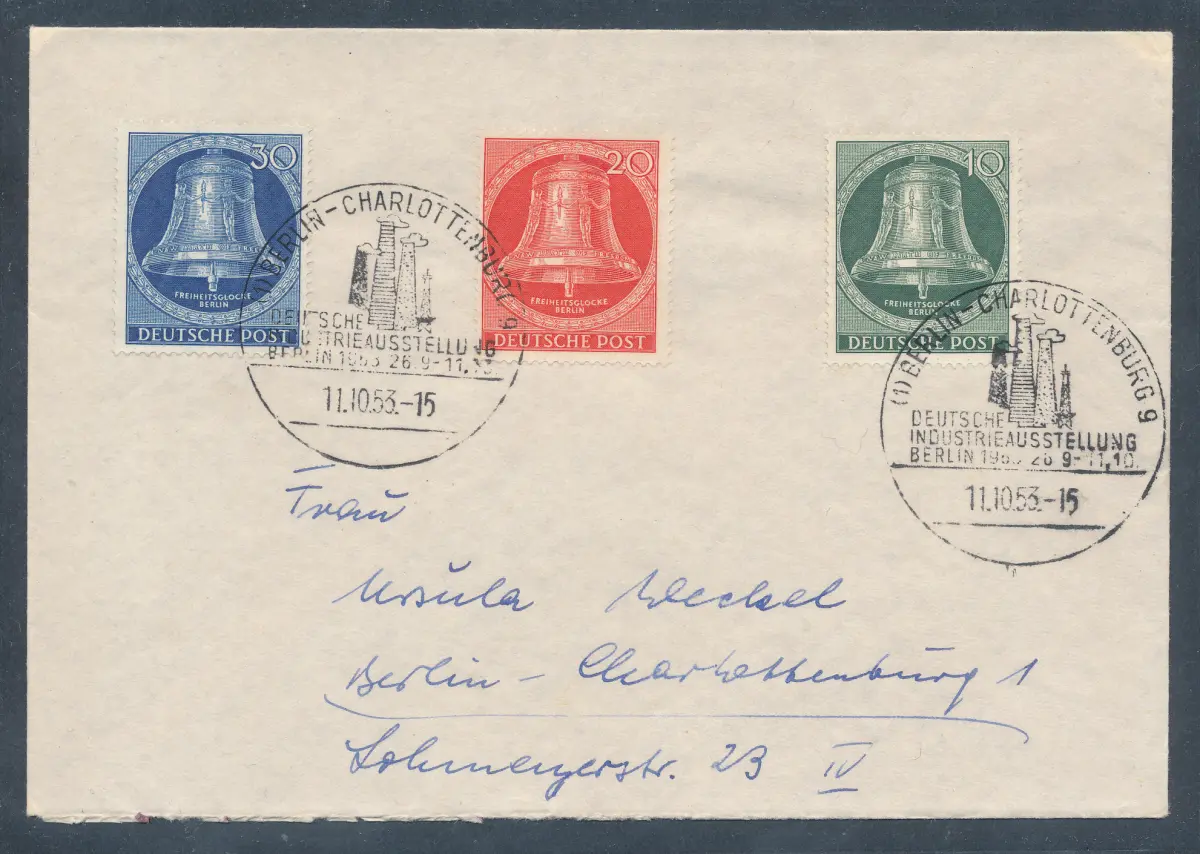 30
FREIHEITSGLOCKE
BERLIN
DEUTSCHE POST
20
FREIHEITSGLOCKE
BERLIN
DEUTSCHE POST
10
FREIHEITSGLOCKE
BERLIN
DEUTSCHE POST
(1) BERLIN-CHARLOTTENBURG 9
DEUTSCHE
INDUSTRIEAUSSTELLUNG
BERLIN 1953 26.9-11.10.
11.10.53.-15
(1) BERLIN-CHARLOTTENBURG 9
DEUTSCHE
INDUSTRIEAUSSTELLUNG
BERLIN 1953 26 9-11,10.
11.10.53.-15
Frau
Ursula Weckel
Berlin-Charlottenburg 1
Lohmeyerstr. 23 IV